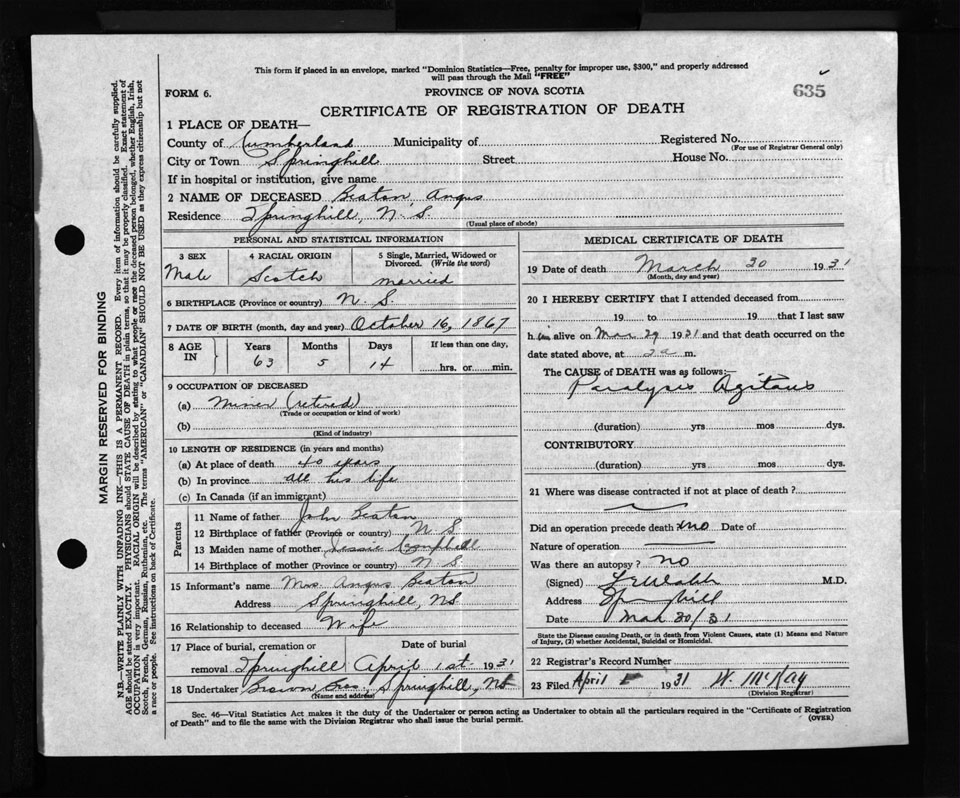 This form if placed in an envelope, marked "Dominion Statistics—Free, penalty for improper use, $300," and properly addressed
will pass through the Mail "FREE"
635
FORM 6.
PROVINCE OF NOVA SCOTIA
CERTIFICATE OF REGISTRATION OF DEATH
1 PLACE OF DEATH—
County of Cumberland Municipality of Registered No.
(For use of Registrar General only)
City or Town Springhill Street House No.
If in hospital or institution, give name
2 NAME OF DECEASED Beaton, Angus
Residence Springhill, N. S.
(Usual place of abode)
PERSONAL AND STATISTICAL INFORMATION
3 SEX 4 RACIAL ORIGIN 5 Single, Married, Widowed or
Divorced. (Write the word)
Male Scotch married
6 BIRTHPLACE (Province or country) N. S.
7 DATE OF BIRTH (month, day and year) October 16, 1867
8 AGE IN Years Months Days If less than one day,
63 5 14 hrs. or min.
9 OCCUPATION OF DECEASED
(a) Miner (retired)
(Trade or occupation or kind of work)
(b)
(Kind of industry)
10 LENGTH OF RESIDENCE (in years and months)
(a) At place of death 40 years
(b) In province all his life
(c) In Canada (if an immigrant)
Parents
11 Name of father John Beaton
12 Birthplace of father (Province or country) N S.
13 Maiden name of mother Jessie Campbell
14 Birthplace of mother (Province or country) N S.
15 Informant's name Mrs. Angus Beaton
Address Springhill, NS
16 Relationship to deceased Wife
17 Place of burial, cremation or Date of burial
removal Springhill April 1st 1931
18 Undertaker Brown Bros., Springhill, NS
(Name and address)
MEDICAL CERTIFICATE OF DEATH
19 Date of death March 30 1931
(Month, day and year)
20 I HEREBY CERTIFY that I attended deceased from
19 to 19 that I last saw
h im alive on Mar 29 1931 and that death occurred on the
date stated above, at 2a m.
The CAUSE of DEATH was as follows:
Paralysis Agitans
(duration) yrs mos dys.
CONTRIBUTORY
(duration) yrs mos dys.
21 Where was disease contracted if not at place of death?
Did an operation precede death? no Date of
Nature of operation
Was there an autopsy? no
(Signed) M.D.
Address Springhill
Date Mar 30/31
State the Disease causing Death, or in death from Violent Causes, state (1) Means and Nature
of Injury, (2) whether Accidental, Suicidal or Homicidal.
22 Registrar's Record Number
23 Filed April 1931 W. McKay
(Division Registrar)
Sec. 46—Vital Statistics Act makes it the duty of the Undertaker or person acting as Undertaker to obtain all the particulars required in the "Certificate of Registration
of Death" and to file the same with the Division Registrar who shall issue the burial permit.
(OVER)
MARGIN RESERVED FOR BINDING
N.B.—WRITE PLAINLY WITH UNFADING INK—THIS IS A PERMANENT RECORD. Every item of information should be carefully supplied.
AGE should be stated EXACTLY. PHYSICIANS should STATE CAUSE OF DEATH in plain terms, so that it may be properly classified. Exact statement of
OCCUPATION is very important. RACIAL ORIGIN will be described by stating to what people or race the deceased person belonged, whether English, Irish,
Scotch, French, German, Russian, Ruthenian, etc. The terms "AMERICAN" or "CANADIAN" SHOULD NOT BE USED as they express citizenship but not
a race or people. See instructions on back of Certificate.